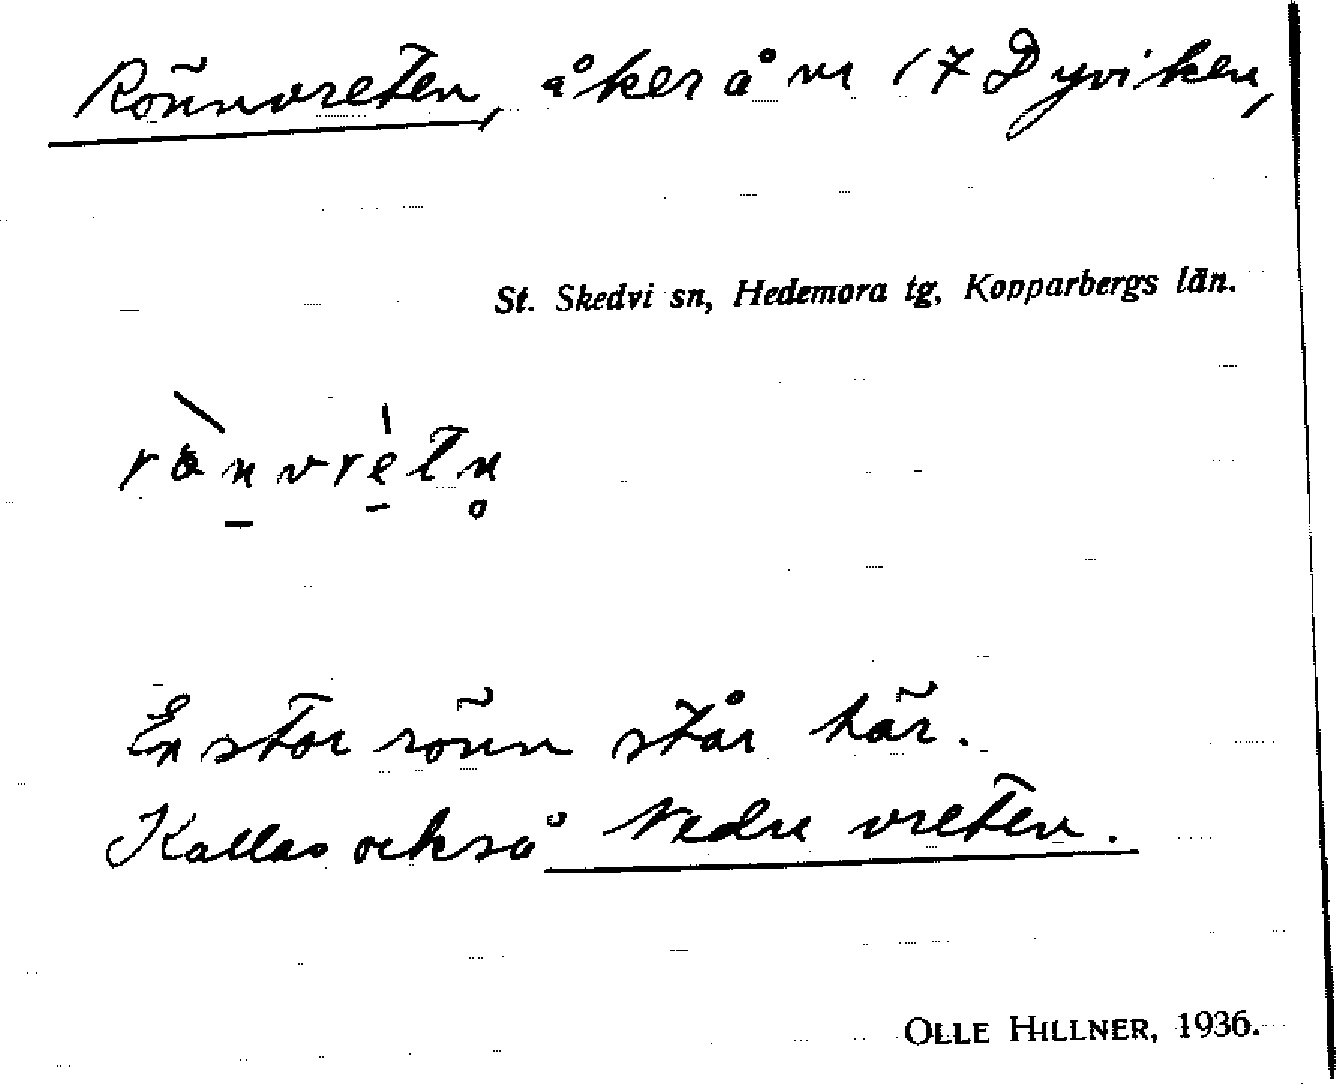 Rönnvreten, åker å nr 17 Dyviken,
St. Skedvi sn, Hedemora tg, Kopparbergs län.
En stor rönn står här.
Kallas också Nedre vreten.
OLLE HILLNER, 1936.